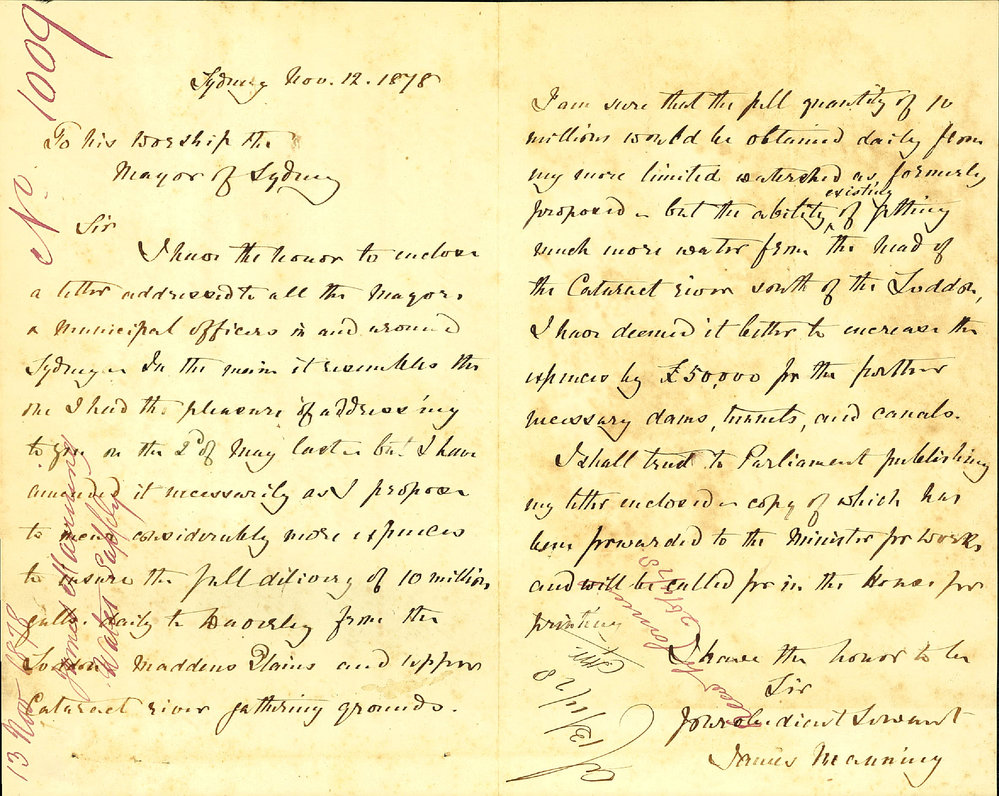 Sydney Nov. 12. 1878
To his Worship the
Mayor of Sydney
Sir
I have the honor to enclose
a letter addressed to all the Mayors
& Municipal officers in and around
Sydney – In the main it resembles the
one I had the pleasure of address'ing
to you on the 2d of May last – but I have
amended it necessarily as I propose
to incur considerably more expences
to insure the full delivery of 10 million
galls. daily to Waverley from the
Loddon, Maddens Plains and upper
Cataract river gathering grounds.
No. 1009
James Manning
Water Supply
13 Nov 1878
I am sure that the full quantity of 10
millions would be obtained daily from
my more limited watershed as formerly
proposed – but the ability existing of getting
much more water from the head of
the Cataract river south of the Loddon,
I have deemed it better to increase the
expences by £50,000 for the further
necessary dams, tunnels, and canals.
I shall trust to Parliament publishing
my letter enclosed – copy of which has
been forwarded to the Minister for Works
and will be called for in the House for
printing
I have the honor to be
Sir
Your obedient Servant
James Manning
13/11/78